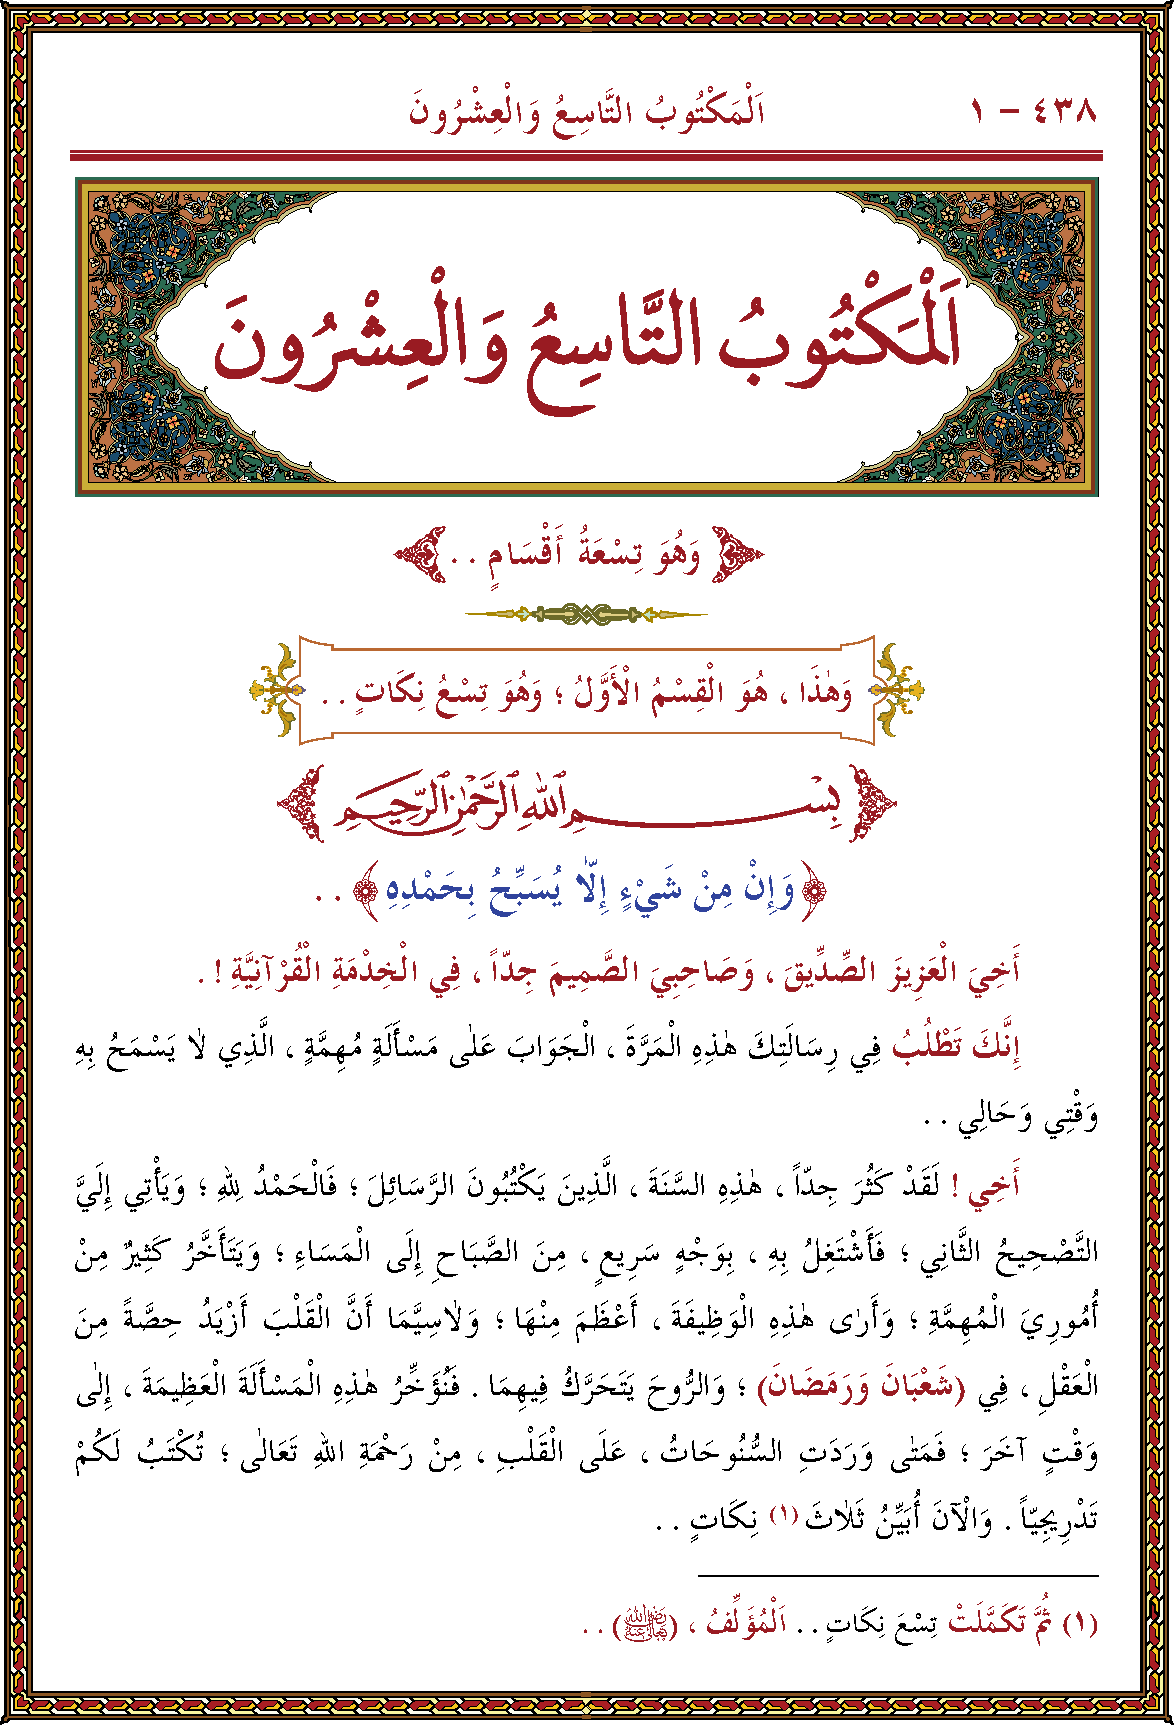 ٤٣٨ – ١ اَلْمَكْتُوبُ التَّاسِعُ وَالْعِشْرُونَ
اَلْمَكْتُوبُ التَّاسِعُ وَالْعِشْرُونَ
وَهُوَ تِسْعَةُ أَقْسَامٍ . .
وَهٰذَا ، هُوَ الْقِسْمُ الْأَوَّلُ ؛ وَهُوَ تِسْعُ نِكَاتٍ . .
بِسْمِ ٱللهِ ٱلرَّحْمٰنِ ٱلرَّحِيمِ
﴿وَإِنْ مِنْ شَيْءٍ إِلَّا يُسَبِّحُ بِحَمْدِهِ﴾ . .
أَخِيَ الْعَزِيزَ الصِّدِّيقَ ، وَصَاحِبِيَ الصَّمِيمَ جِدّاً ، فِي الْخِدْمَةِ الْقُرْآنِيَّةِ ! .
إِنَّكَ تَطْلُبُ فِي رِسَالَتِكَ هٰذِهِ الْمَرَّةَ ، الْجَوَابَ عَلٰى مَسْأَلَةٍ مُهِمَّةٍ ، الَّذِي لَا يَسْمَحُ بِهِ
وَقْتِي وَحَالِي . .
أَخِي ! لَقَدْ كَثُرَ جِدّاً ، هٰذِهِ السَّنَةَ ، الَّذِينَ يَكْتُبُونَ الرَّسَائِلَ ؛ فَالْحَمْدُ لِلهِ ؛ وَيَأْتِي إِلَيَّ
التَّصْحِيحُ الثَّانِي ؛ فَأَشْتَغِلُ بِهِ ، بِوَجْهٍ سَرِيعٍ ، مِنَ الصَّبَاحِ إِلَى الْمَسَاءِ ؛ وَيَتَأَخَّرُ كَثِيرٌ مِنْ
أُمُورِيَ الْمُهِمَّةِ ؛ وَأَرٰى هٰذِهِ الْوَظِيفَةَ ، أَعْظَمَ مِنْهَا ؛ وَلَاسِيَّمَا أَنَّ الْقَلْبَ أَزْيَدُ حِصَّةً مِنَ
الْعَقْلِ ، فِي (شَعْبَانَ وَرَمَضَانَ) ؛ وَالرُّوحَ يَتَحَرَّكُ فِيهِمَا . فَنُؤَخِّرُ هٰذِهِ الْمَسْأَلَةَ الْعَظِيمَةَ ، إِلٰى
وَقْتٍ آخَرَ ؛ فَمَتٰى وَرَدَتِ السُّنُوحَاتُ ، عَلَى الْقَلْبِ ، مِنْ رَحْمَةِ اللهِ تَعَالٰى ؛ تُكْتَبُ لَكُمْ
تَدْرِيجِيّاً . وَالْآنَ أُبَيِّنُ ثَلَاثَ (١) نِكَاتٍ . .
(١) ثُمَّ تَكَمَّلَتْ تِسْعَ نِكَاتٍ . . اَلْمُؤَلِّفُ ، (رَضِيَ اللهُ تَعَالَى عَنْهُ) . .